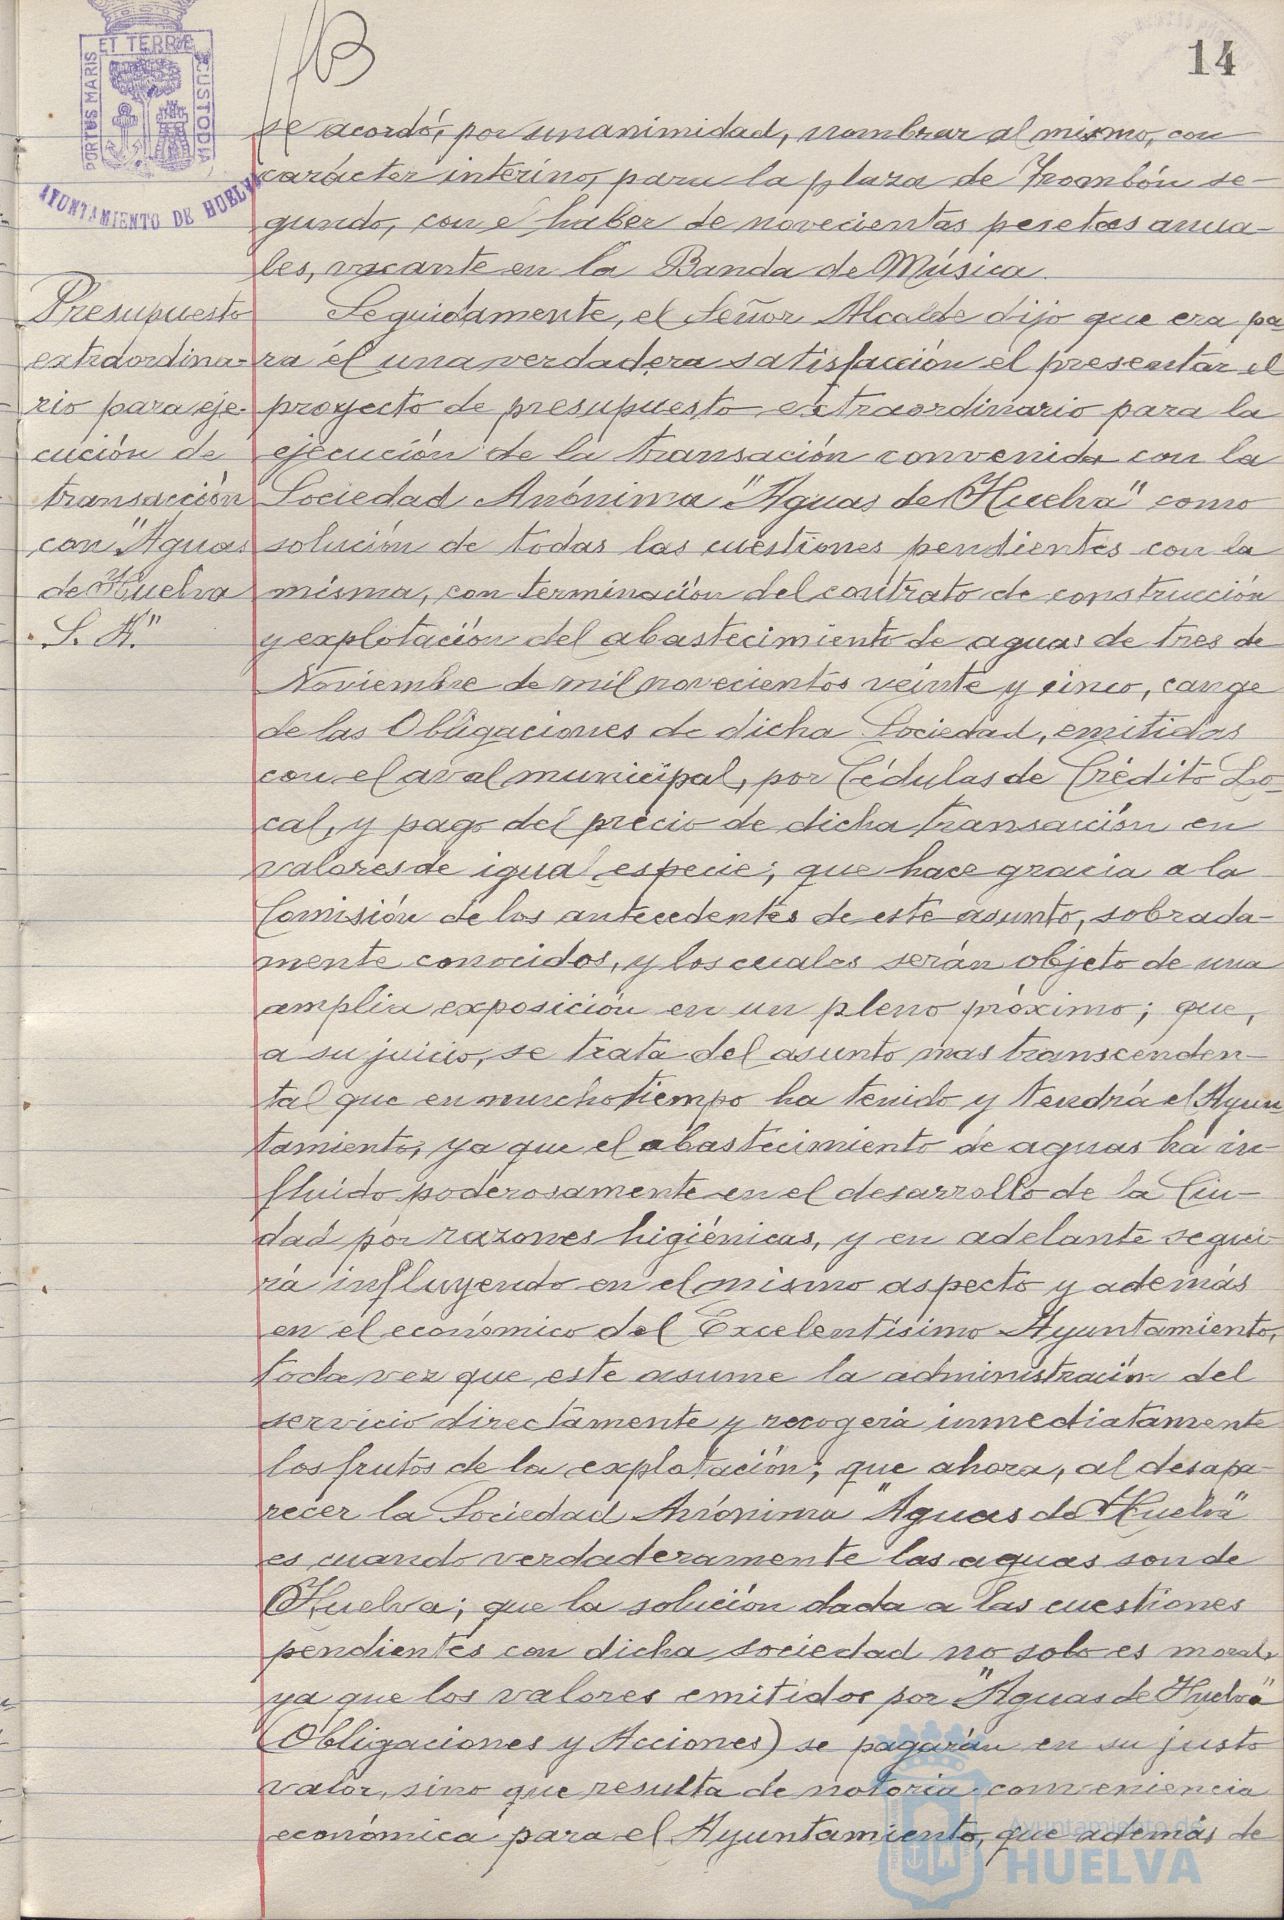 14
PORTUS MARIS ET TERRE CUSTODIA
AYUNTAMIENTO DE HUELVA
se acordó, por unanimidad, nombrar al mismo, con
carácter interino, para la plaza de Trombón se-
gundo, con el haber de novecientas pesetas anua-
les, vacante en la Banda de Música.
Presupuesto
extraordina-
rio para eje-
cución de
transacción
con "Aguas
de Huelva
S. A."
Seguidamente, el Señor Alcalde dijo que era pa-
ra él una verdadera satisfacción el presentar el
proyecto de presupuesto extraordinario para la
ejecución de la transación convenida con la
Sociedad Anónima "Aguas de Huelva" como
solución de todas las cuestiones pendientes con la
misma, con terminación del contrato de construcción
y explotación del abastecimiento de aguas de tres de
Noviembre de mil novecientos veinte y cinco, cange
de las Obligaciones de dicha Sociedad, emitidas
con el aval municipal, por Cédulas de Crédito Lo-
cal, y pago del precio de dicha transación en
valores de igual especie; que hace gracia a la
Comisión de los antecedentes de este asunto, sobrada-
mente conocidos, y los cuales serán objeto de una
amplia exposición en un pleno próximo; que,
a su juicio, se trata del asunto mas transcenden-
tal que en mucho tiempo ha tenido y tendrá el Ayun
tamiento, ya que el abastecimiento de aguas ha in-
fluido poderosamente en el desarrollo de la Ciu-
dad por razones higiénicas, y en adelante segui-
rá influyendo en el mismo aspecto y además
en el económico del Excelentísimo Ayuntamiento,
toda vez que este asume la administración del
servicio directamente y recogerá inmediatamente
los frutos de la explotación; que ahora, al desapa-
recer la Sociedad Anónima "Aguas de Huelva"
es cuando verdaderamente las aguas son de
Huelva; que la solución dada a las cuestiones
pendientes con dicha sociedad no solo es moral,
ya que los valores emitidos por "Aguas de Huelva"
(Obligaciones y Acciones) se pagarán en su justo
valor, sino que resulta de notoria conveniencia
económica para el Ayuntamiento, que además de
Ayuntamiento de
HUELVA